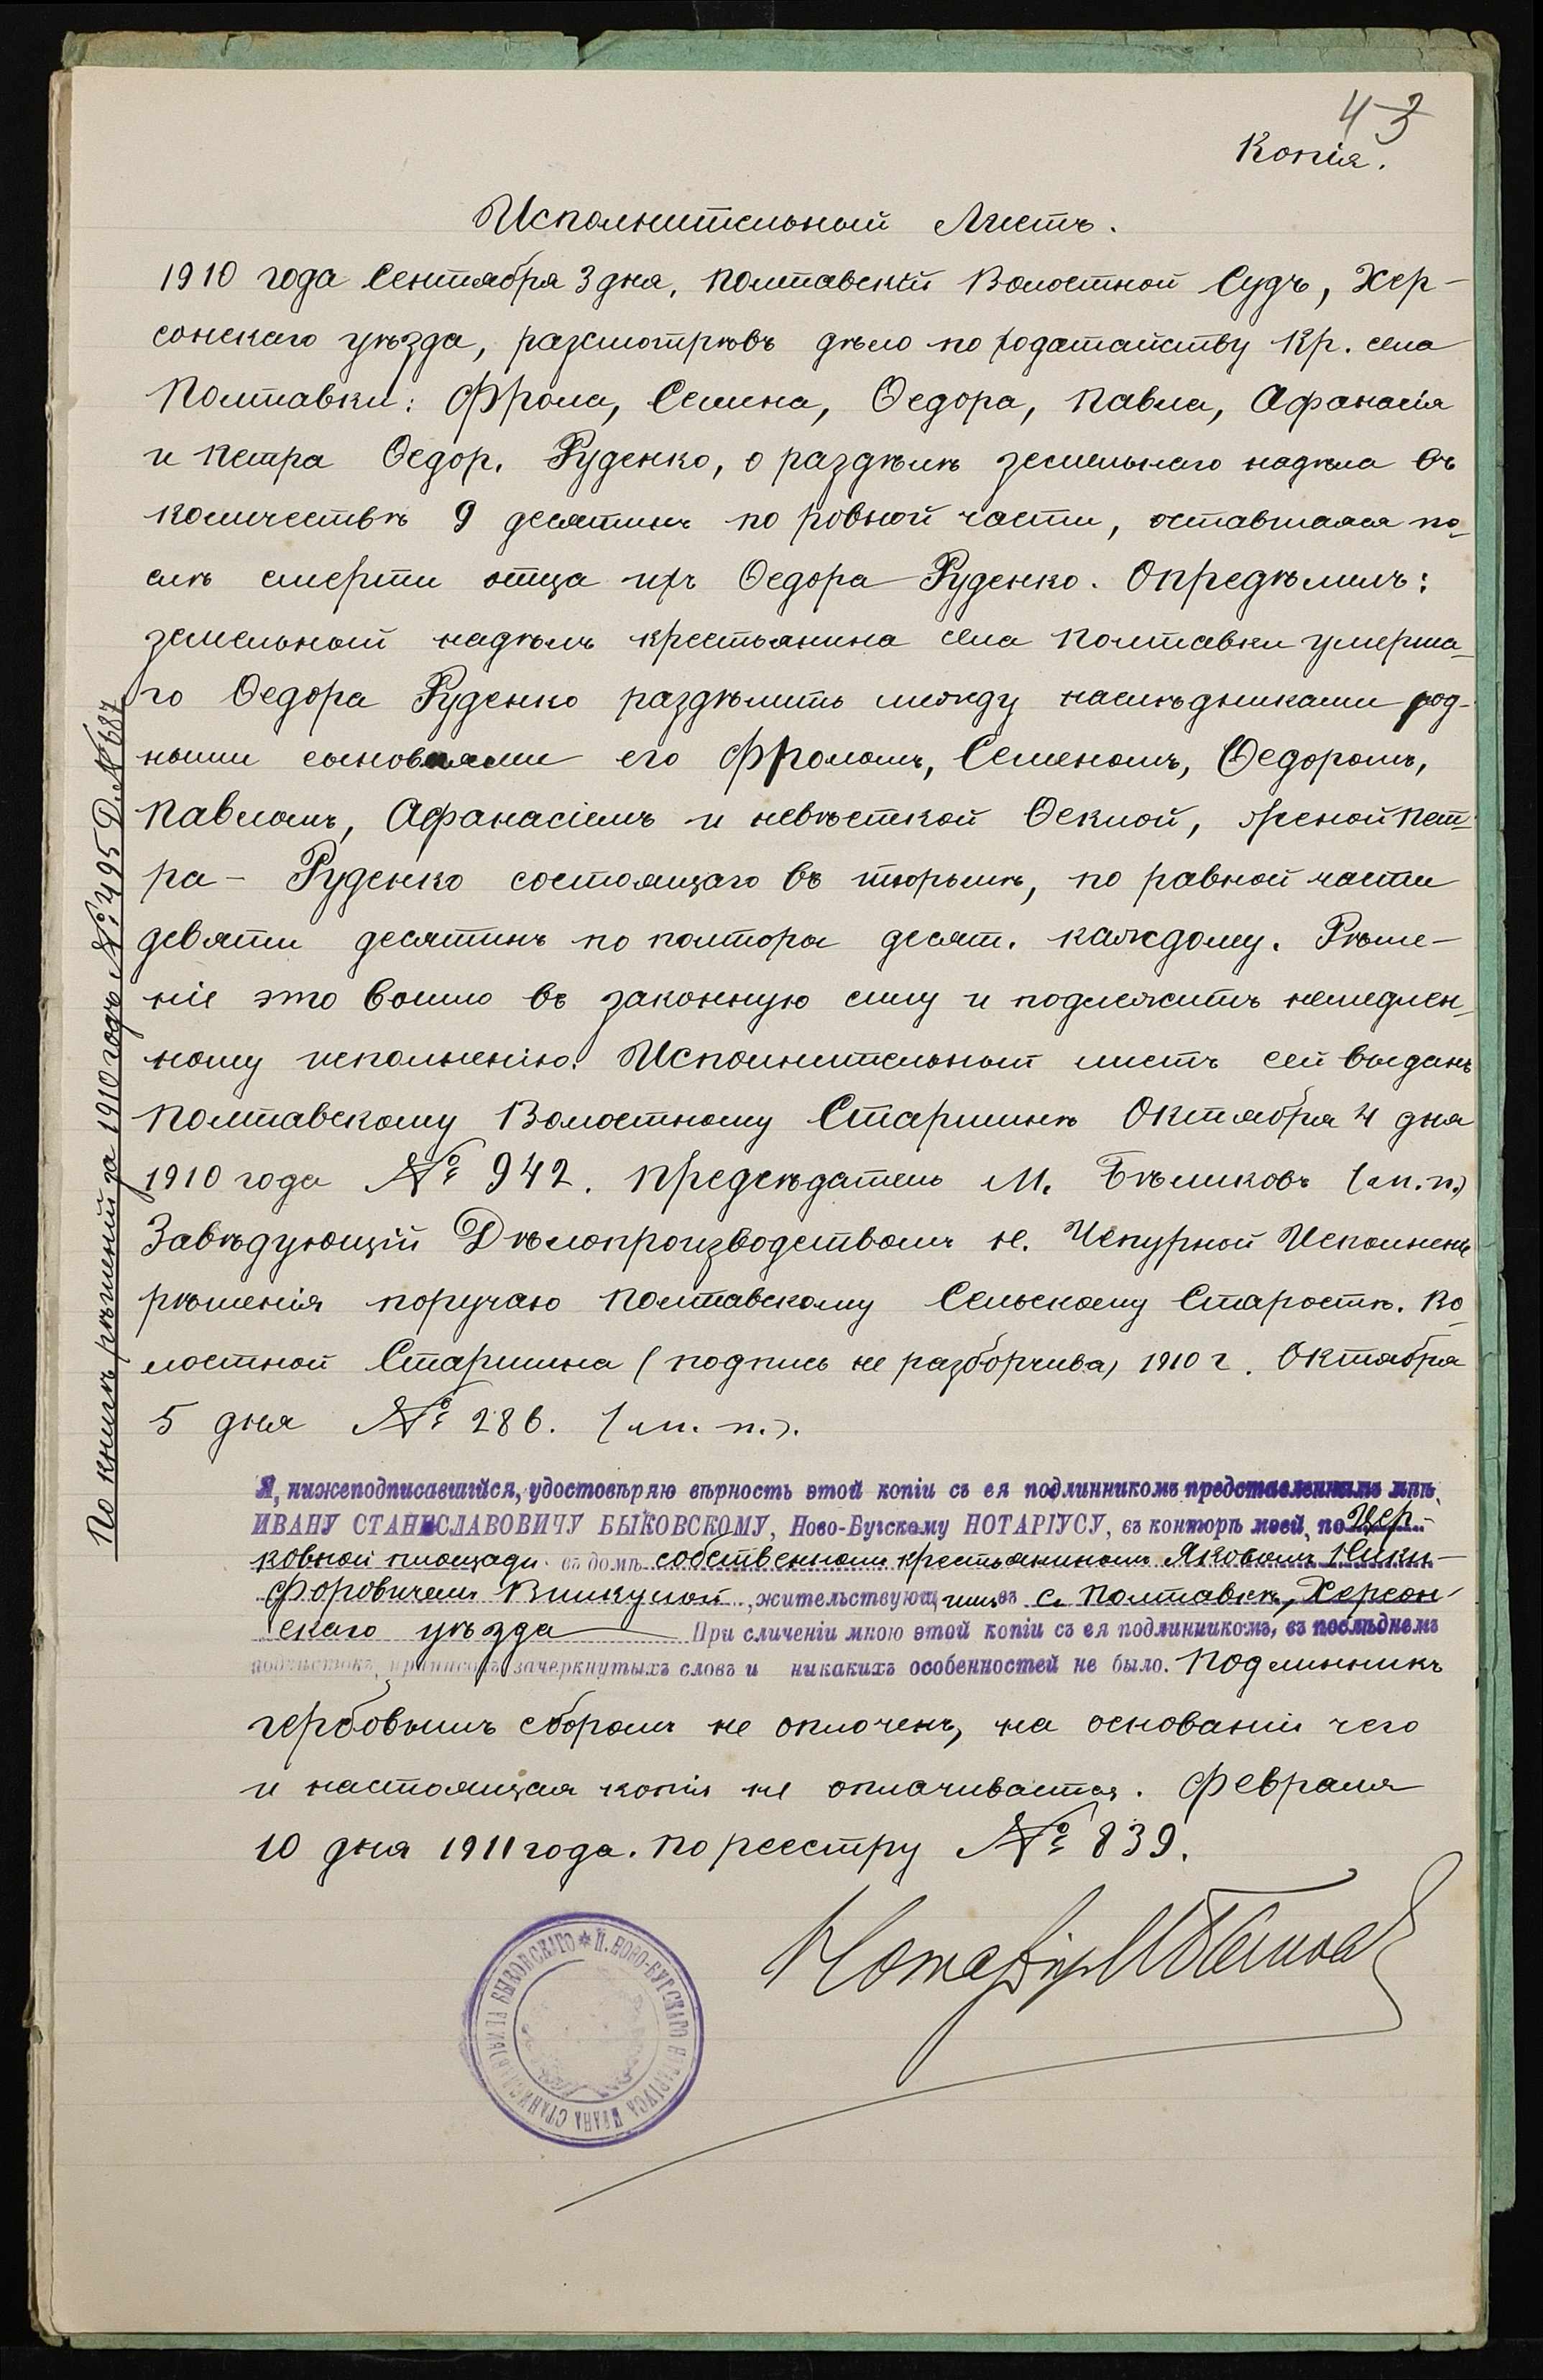 43
Копія.
Исполнительный Листъ.
1910 года Сентября 3 дня, Полтавскій Волостной Судъ, Хер-
сонскаго уѣзда, разсмотрѣвъ дѣло по ходатайству Кр. села
Полтавки: Фрола, Семена, Ѳедора, Павла, Афанасія
и Петра Ѳедор. Руденко, о раздѣлѣ земельнаго надѣла въ
количествѣ 9 десятинъ по ровной части, оставшаяся по-
слѣ смерти отца ихъ Ѳедора Руденко. Опредѣлилъ:
земельный надѣлъ крестьянина села Полтавки умерша-
го Ѳедора Руденко раздѣлить между наслѣдниками род-
ными сыновьями его Фроломъ, Семеномъ, Ѳедоромъ,
Павломъ, Афанасіемъ и невѣсткой Ѳеклой, женой Пет-
ра - Руденко состоящаго въ тюрьмѣ, по равной части
девяти десятинъ по полторы десят. каждому. Рѣше-
ніе это вошло въ законную силу и подлежитъ немедлен-
ному исполненію. Исполнительный листъ сей выданъ
Полтавскому Волостному Старшинѣ Октября 4 дня
1910 года № 942. Предсѣдатель М. Бѣликовъ (м.п.)
Завѣдующій Дѣлопроизводствомъ Н. Чепурной Исполнен
рѣшенія поручаю Полтавскому Сельскому Старостѣ. Во-
лостной Старшина (подпись не разборчива) 1910 г. Октября
5 дня № 286. (м. п.).
По книгѣ рѣшеній за 1910 годъ № 495 Д. № 687
Я, нижеподписавшійся, удостовѣряю вѣрность этой копіи съ ея подлинникомъ представленнымъ мнѣ,
ИВАНУ СТАНИСЛАВОВИЧУ БЫКОВСКОМУ, Ново-Бугскому НОТАРІУСУ, въ конторѣ моей, по Цер-
ковной площади въ домѣ собственномъ крестьяниномъ Яковомъ Ники-
форовичемъ Викулой, жительствующимъ въ с. Полтавкѣ, Херсон-
скаго уѣзда При сличеніи мною этой копіи съ ея подлинникомъ, въ послѣднемъ
подчистокъ, приписокъ зачеркнутыхъ словъ и никакихъ особенностей не было. Подлинникъ
гербовымъ сборомъ не оплоченъ, на основаніи чего
и настоящая копія не оплачивается. Февраля
10 дня 1911 года. По реестру № 839.
Нотаріусъ
* Н. НОВО-БУГСКАГО НОТАРІУСА ИВАНА СТАНИСЛАВОВИЧА БЫКОВСКАГО